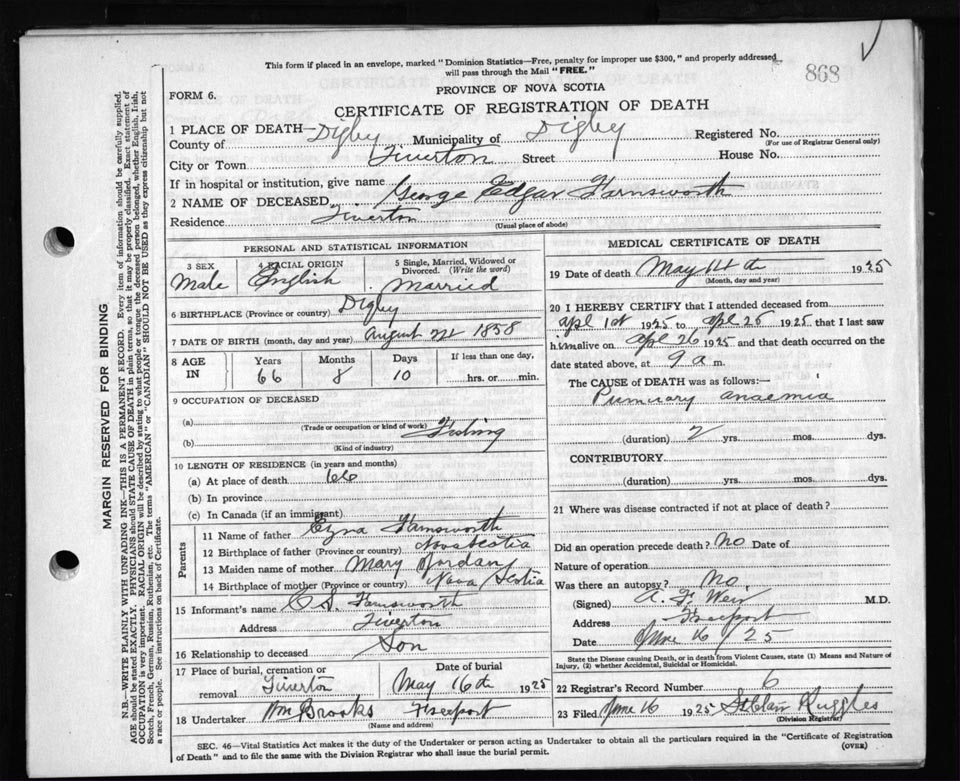 This form if placed in an envelope, marked "Dominion Statistics—Free, penalty for improper use $300," and properly addressed
will pass through the Mail "FREE."
868
PROVINCE OF NOVA SCOTIA
FORM 6.
CERTIFICATE OF REGISTRATION OF DEATH
1 PLACE OF DEATH—
County of Digby Municipality of Digby Registered No.
(For use of Registrar General only)
City or Town Tiverton Street House No.
If in hospital or institution, give name
2 NAME OF DECEASED George Edgar Farnsworth
Residence Tiverton
(Usual place of abode)
PERSONAL AND STATISTICAL INFORMATION
3 SEX Male
4 RACIAL ORIGIN English
5 Single, Married, Widowed or Divorced. (Write the word) Married
6 BIRTHPLACE (Province or country) Digby
7 DATE OF BIRTH (month, day and year) August 1858
8 AGE IN Years Months Days If less than one day,
66 8 10 hrs. or min.
9 OCCUPATION OF DECEASED
(a)
(Trade or occupation or kind of work) Fishing
(b)
(Kind of industry)
10 LENGTH OF RESIDENCE (in years and months)
(a) At place of death 66
(b) In province
(c) In Canada (if an immigrant)
Parents
11 Name of father Ezra Farnsworth
12 Birthplace of father (Province or country) Nova Scotia
13 Maiden name of mother Mary Jordan
14 Birthplace of mother (Province or country) Nova Scotia
15 Informant's name Farnsworth
Address Tiverton
16 Relationship to deceased Son
17 Place of burial, cremation or removal Tiverton
Date of burial May 16th 1925
18 Undertaker Wm Brooks Freeport
(Name and address)
MEDICAL CERTIFICATE OF DEATH
19 Date of death May 14th 1925
(Month, day and year)
20 I HEREBY CERTIFY that I attended deceased from
apl 1st 1925 to apl 25 1925 that I last saw
him alive on apl 26 1925 and that death occurred on the
date stated above, at 9 a m.
The CAUSE of DEATH was as follows:—
anaemia
(duration) 2 yrs. mos. dys.
CONTRIBUTORY
(duration) yrs. mos. dys.
21 Where was disease contracted if not at place of death?
Did an operation precede death? No Date of
Nature of operation
Was there an autopsy? No
(Signed) A. F. Weir M.D.
Address Freeport
Date June 16 / 25
State the Disease causing Death, or in death from Violent Causes, state (1) Means and Nature of
Injury, (2) whether Accidental, Suicidal or Homicidal.
22 Registrar's Record Number 6
23 Filed June 16 1925 Ruggles
(Division Registrar)
SEC. 46—Vital Statistics Act makes it the duty of the Undertaker or person acting as Undertaker to obtain all the particulars required in the "Certificate of Registration
of Death" and to file the same with the Division Registrar who shall issue the burial permit.
(OVER)
MARGIN RESERVED FOR BINDING
N.B.—WRITE PLAINLY WITH UNFADING INK—THIS IS A PERMANENT RECORD. Every item of information should be carefully supplied.
AGE should be stated EXACTLY. PHYSICIANS should STATE CAUSE OF DEATH in plain terms, so that it may be properly classified. Exact statement of
OCCUPATION is very important. RACIAL ORIGIN will be described by stating to what people or tongue the deceased person belonged, whether English, Irish,
Scotch, French, German, Russian, Ruthenian, etc. The terms "AMERICAN" or "CANADIAN" SHOULD NOT BE USED as they express citizenship but not
a race or people. See instructions on back of Certificate.